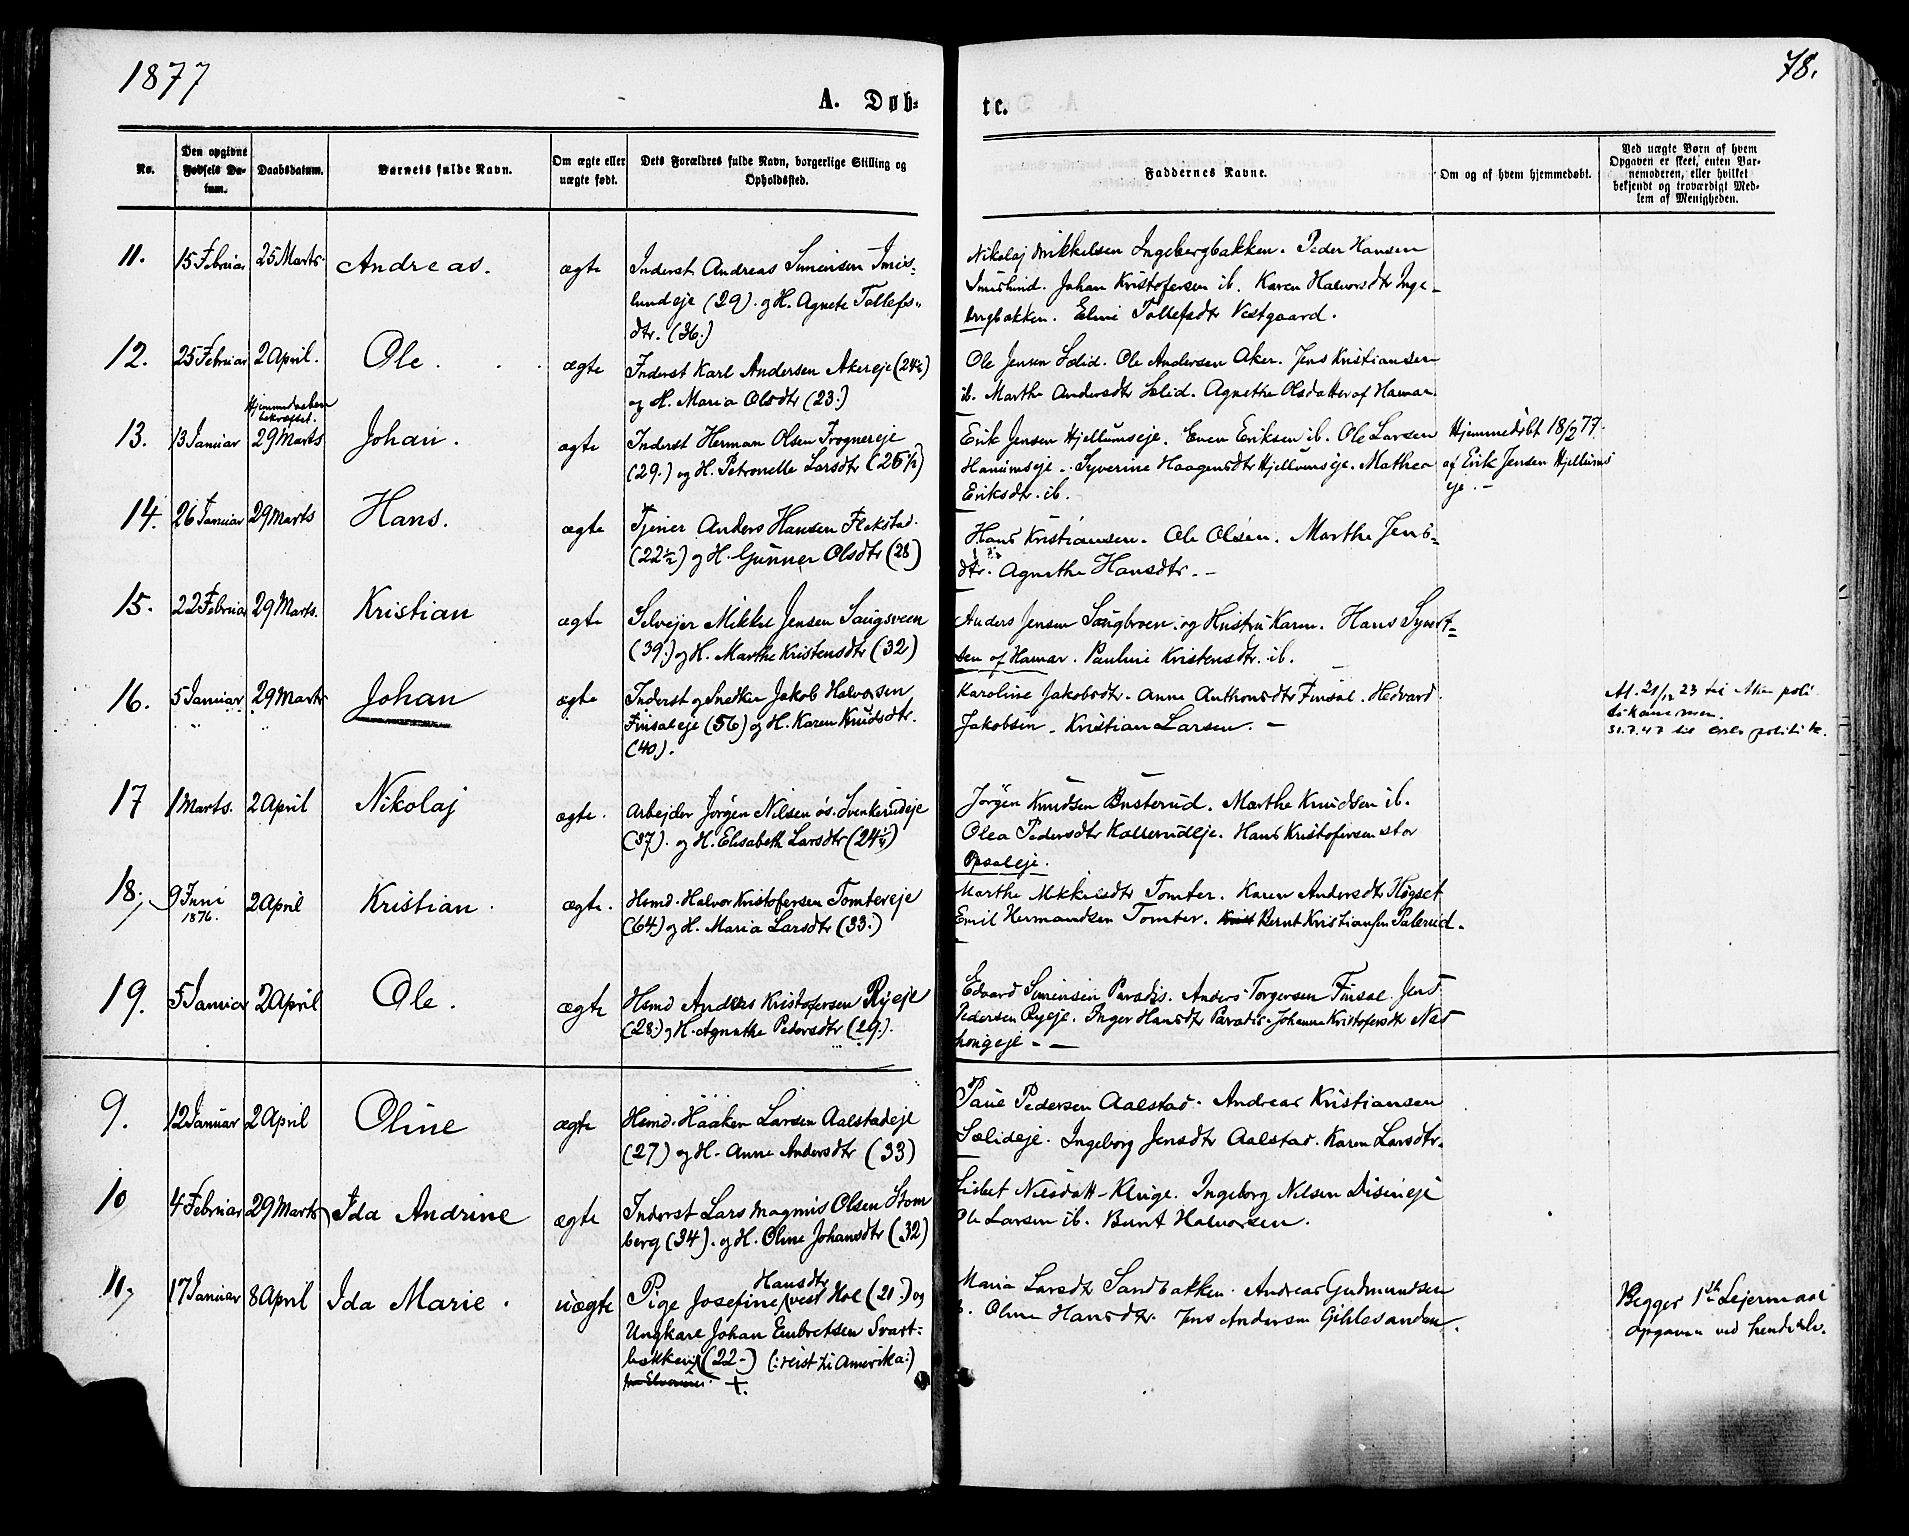 1877
78.
A. Døb-
te.
No.
Den opgivne
Fødsels Da-
tum.
Daabsdatum.
Barnets fulde Navn.
Om ægte eller
uægte født.
Dets Forældres fulde Navn, borgerlige Stilling og
Opholdssted.
Faddernes Navne.
Om og af hvem hjemmedøbt.
Ved uægte Børn af hvem
Opgaven er skeet, enten Bar-
nemoderen, eller hvilket
bekjendt og troværdigt Med-
lem af Menigheden.
11. 15 Februar 25 Marts. Andreas. ægte
Inderst Andreas Simensen Imis-
lundeje (29). og H. Agnete Tollefs-
dtr. (36.)
Nikolaj Mikkelsen Ingebergbakken. Peder Hansen
Imislund. Johan Kristofersen ib. Karen Halvorsdtr Inge-
bergbakken. Eline Tollefsdtr Vestgaard.
12. 25 Februar 2 April. Ole. ægte
Inderst Karl Andersen Akereje (24½)
og H. Maria Olsdtr (23.)
Ole Jensen Sælid. Ole Andersen Aker. Jens Kristiansen
ib. Marthe Andersdtr Sælid. Agnethe Olsdatter af Hamar.
Hjemmedaaben
bekræftet.
13. 13 Januar 29 Marts Johan. ægte
Inderst Herman Olsen Frognereje
(29.) og H. Petronelle Larsdtr (25½)
Erik Jensen Hjellumseje. Even Eriksen ib. Ole Larsen
Hanumseje. Syverine Haagensdtr Hjellumseje. Mathea
Eriksdtr. ib.
Hjemmedøbt 18/2 77.
af Erik Jensen Hjellums
eje.-
14. 26 Januar 29 Marts Hans. ægte
Tjener Anders Hansen Flakstad.
(22½) og H. Gunner Olsdtr (28)
Hans Kristiansen. Ole Olsen. Marthe Jens-
dtr. Agnethe Hansdtr.-
15. 22 Februar 29 Marts. Kristian ægte
Selvejer Mikkel Jensen Saugsveen
(39.) og H. Marthe Kristensdtr (32)
Anders Jensen og Hustru Karen. Hans Syvert-
sen af Hamar. Pauline Kristensdtr. ib.
16. 5 Januar 29 Marts Johan ægte
Inderst og Snedker Jakob Halvorsen
Finsaleje (56) og H. Karen Knudsdtr.
(40).
Karoline Jakobsdtr. Anne Anthonsdtr Finsal. Hedvard
Jakobsen. Kristian Larsen.-
At. 21/12 23 til Aker poli
tikammer.
31.7.47 til Oslo politik.
17 1 Marts. 2 April Nikolaj ægte.
Arbejder Jørgen Nilsen øs. Svenkerudeje
(37). og H. Elisabeth Larsdtr (24¼)
Jørgen Knudsen Busterud. Marthe Knudsen ib.
Olea Pedersdtr Kallerudeje. Hans Kristofersen stor
Opsaleje.
18. 9 Juni 2 April Kristian. ægte.
1876.
Hsmd. Halvor Kristofersen Tomtereje
(64) og H. Maria Larsdtr (33.)
Marthe Mikkelsdtr Tomter. Karen Andersdtr Høgset
Emil Hermandsen Tomter. Bernt Kristiansen Palerud.
19. 5 Januar 2 April Ole. ægte
Hsmd Anders Kristofersen Ryeje
(28.) og H. Agnethe Pedersdtr (29.).
Edvard Simensen Paradis. Anders Torgersen Finsal. Jens
Pedersen Ryeje. Inger Hansdtr Paradis. Johanne Kristofersdtr Næs
hongeje.-
9. 12 Januar 2 April Oline ægte
Hsmd. Haaken Larsen Aalstadeje
(27) og H. Anne Andersdtr (33)
Paul Pedersen Aalstad. Andreas Kristiansen
Sælideje. Ingeborg Jensdtr Aalstad. Karen Larsdtr.
10 4 Februar 29 Marts Ida Andrine ægte
Inderst Lars Magnus Olsen Strom
berg (34). og H. Oline Johansdtr (32)
Lisbet Nilsdatt- Kluge. Ingeborg Nilsen Disineje
Ole Larsen ib. Bernt Halvorsen.
11. 17 Januar 8 April Ida Marie. uægte
Hansdtr
Pige Josefine vest Hol (21.) og
Ungkarl Johan Embretsen Svart-
bakken (22-) (:reist til Amerika:)
Maria Larsdtr Sandbakken. Andreas Gudmundsen
Oline Hansdtr. Jens Andersen Gihlesanden.
Begges 1ste Lejermaal
opgaven ved hende selv.